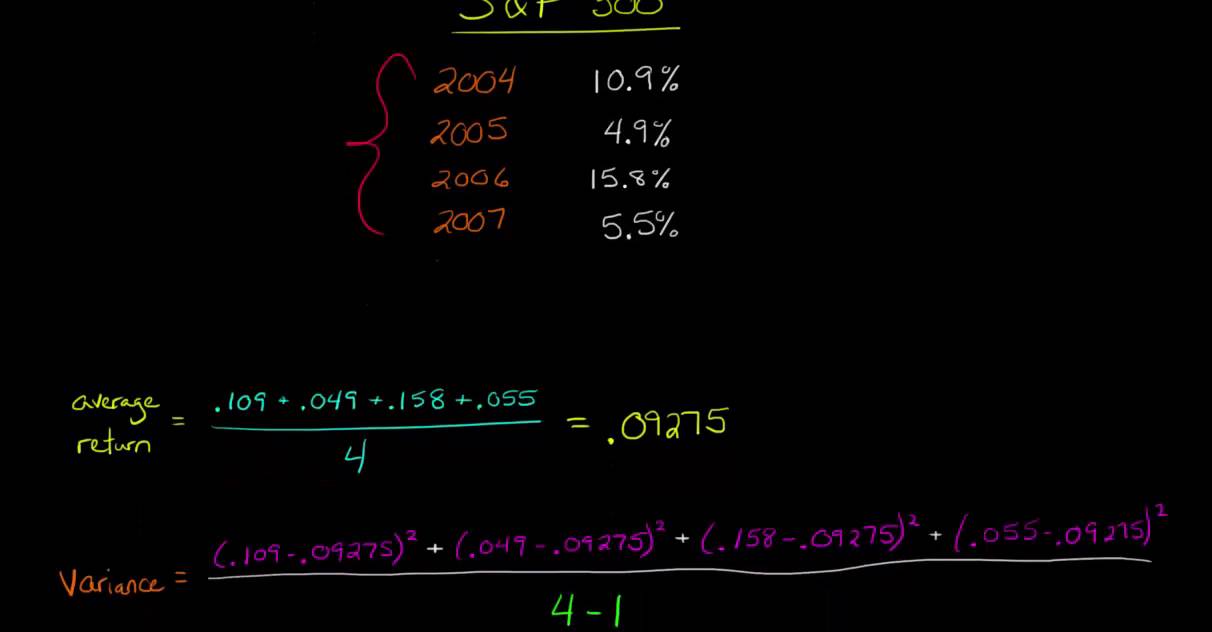 S&P 500
2004 10.9%
2005 4.9%
2006 15.8%
2007 5.5%
average return = .109 + .049 + .158 + .055 / 4 = .09275
Variance = (.109 - .09275)² + (.049 - .09275)² + (.158 - .09275)² + (.055 - .09275)² / 4 - 1